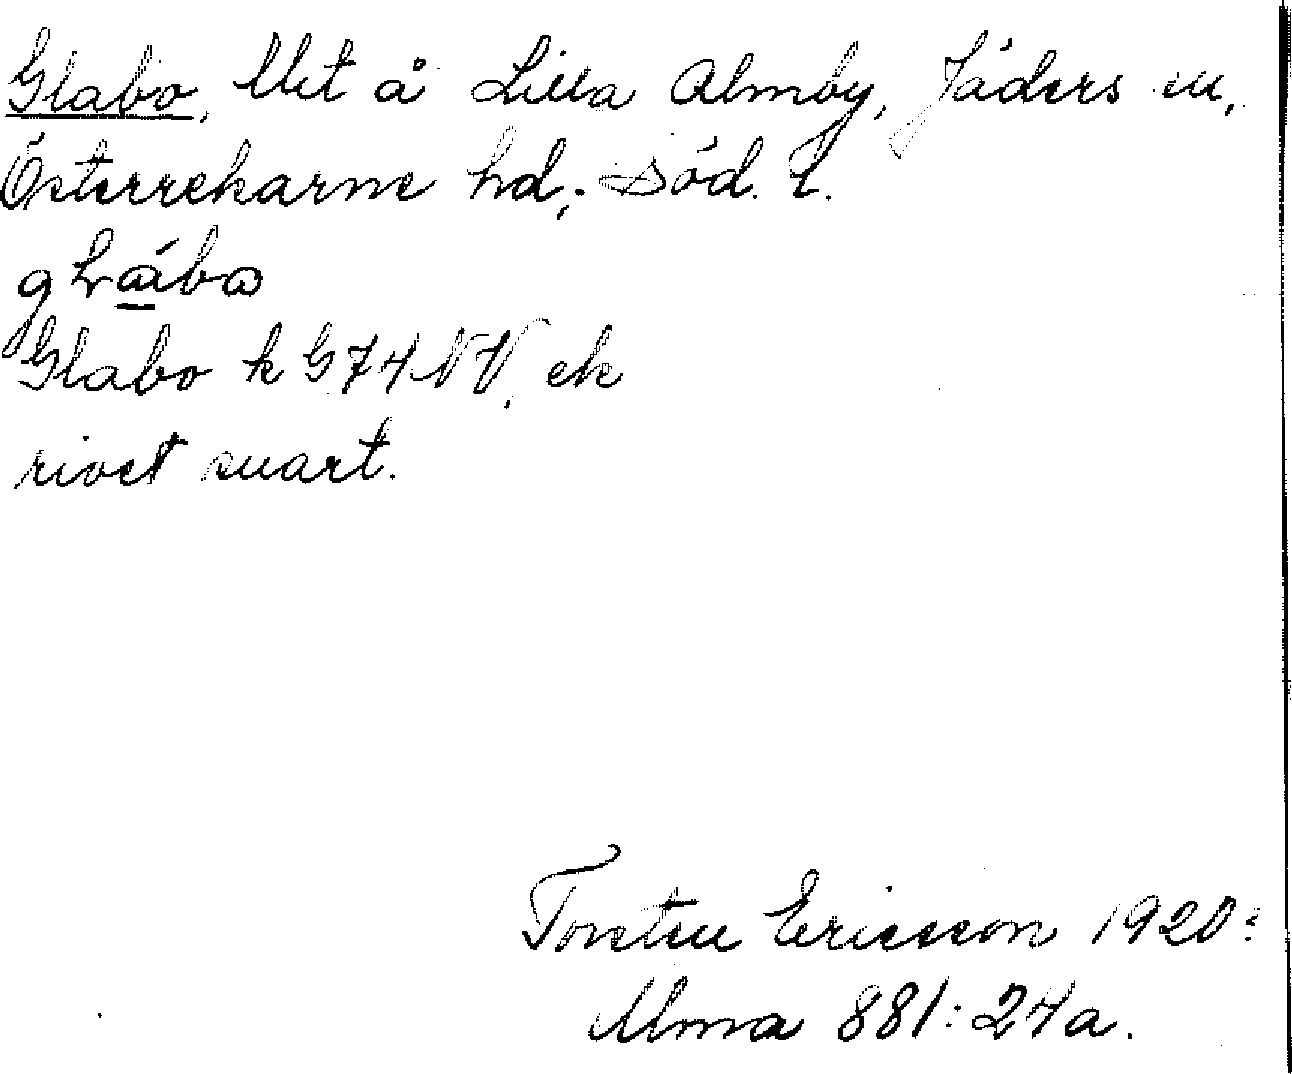 Glabo, lht å Lilla Almby, Jäders sn,
Österrekarne hd; Söd. l.
Glabo k G74NV, ek
rivet svart.
Torsten Ericsson 1920:
Alma 881:24a.